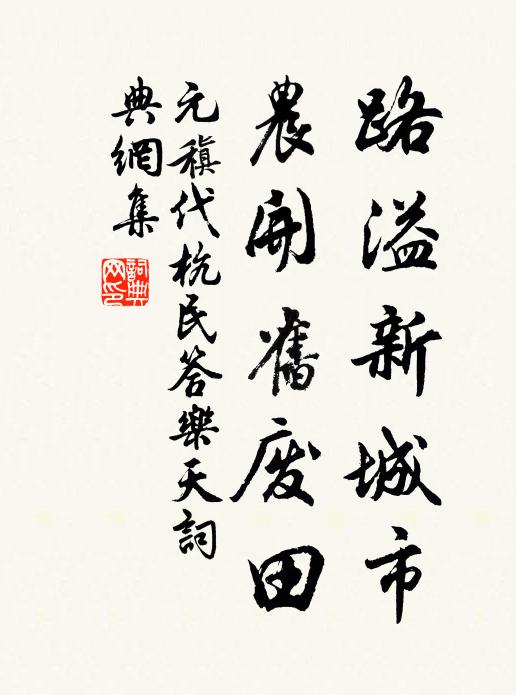 路溢新城市
農開舊废田
元稹代杭民答樂天詞
典網集
詞典
网印